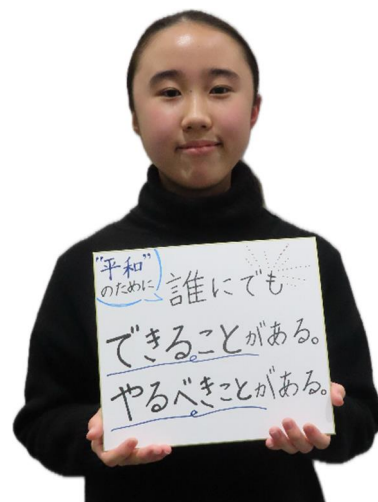 "平和"
のために
誰にでも
できることがある。
やるべきことがある。